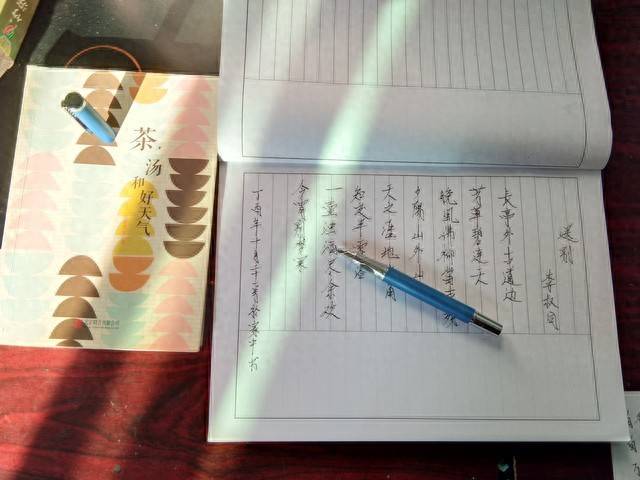 茶,
汤
和
好天气
送别
李叔同
长亭外古道边
芳草碧连天
晚風拂柳笛声残
夕陽山外山
天之涯地角
知交半零
一壶浊酒尽余欢
今宵别梦寒
丁酉年十月二十